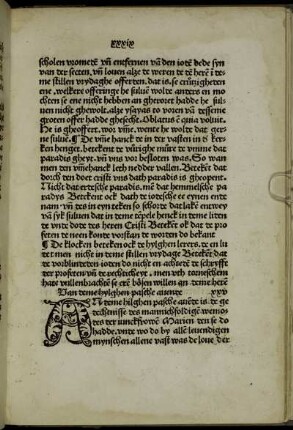 xxxix
scholen vrometē vñ entfernen vā den ioté bede syn
van der secten, vñ louen alze te weren te tē here i te
me stillen vrydaghe offerten, dat is, se crutigheten
ene, welkere offeringe he suluē wolte anters en mo
chten se ene nicht hebben an ghevoret hadde he sul
uen nicht ghewolt, alze ysayas to voren van tesseme
groten offer hadde ghesecht, Oblatus ē quia voluit.
He is gheoffert, wor vme, wente he wolte dat ger
ne suluē. ¶ De vme hanck te in ter vasten in ter ker
ken henget, beteket te vurighe müre te vmme dat
paradis gheyt, vñ vns vor besloten was, So wan
men ten vmehanck leth nedder vallen, Beteket dat
dorch ten doet cristi vns dath paradis is gheopent.
Nicht dat ertesche paradis, mē dat hemmelsche pa
radys Betekent ock dath te iotesche ee eynen ente
nam, vñ tes in eyn teken so schorte dat laken entwey
van syk suluen dat in teme tēpele henck in teme liten
te vnte dote tes heren Cristi Beteket ok dat te pro
feten te neen konte vorstan te worten do bekant
¶ De klocken beteken ock te hylghen lerers, te en lu
tet men nicht in teme stillen vrydage Beteket dat
te vorblinteten ioten do nicht en achtede te schryfft
ter profeten vñ te
hadt vullenbracht se ere bösen willen an teme here
Van teme hylghen pasche auente xxv
AN teme hilghen pasche auēte is te ge
techtenisse tes mannichfoldigē wemo
tes ter iunckfrowē Marien teu se do
hadde, vnte wo do by allē leuendigen
mynschen allene vast was de loue der